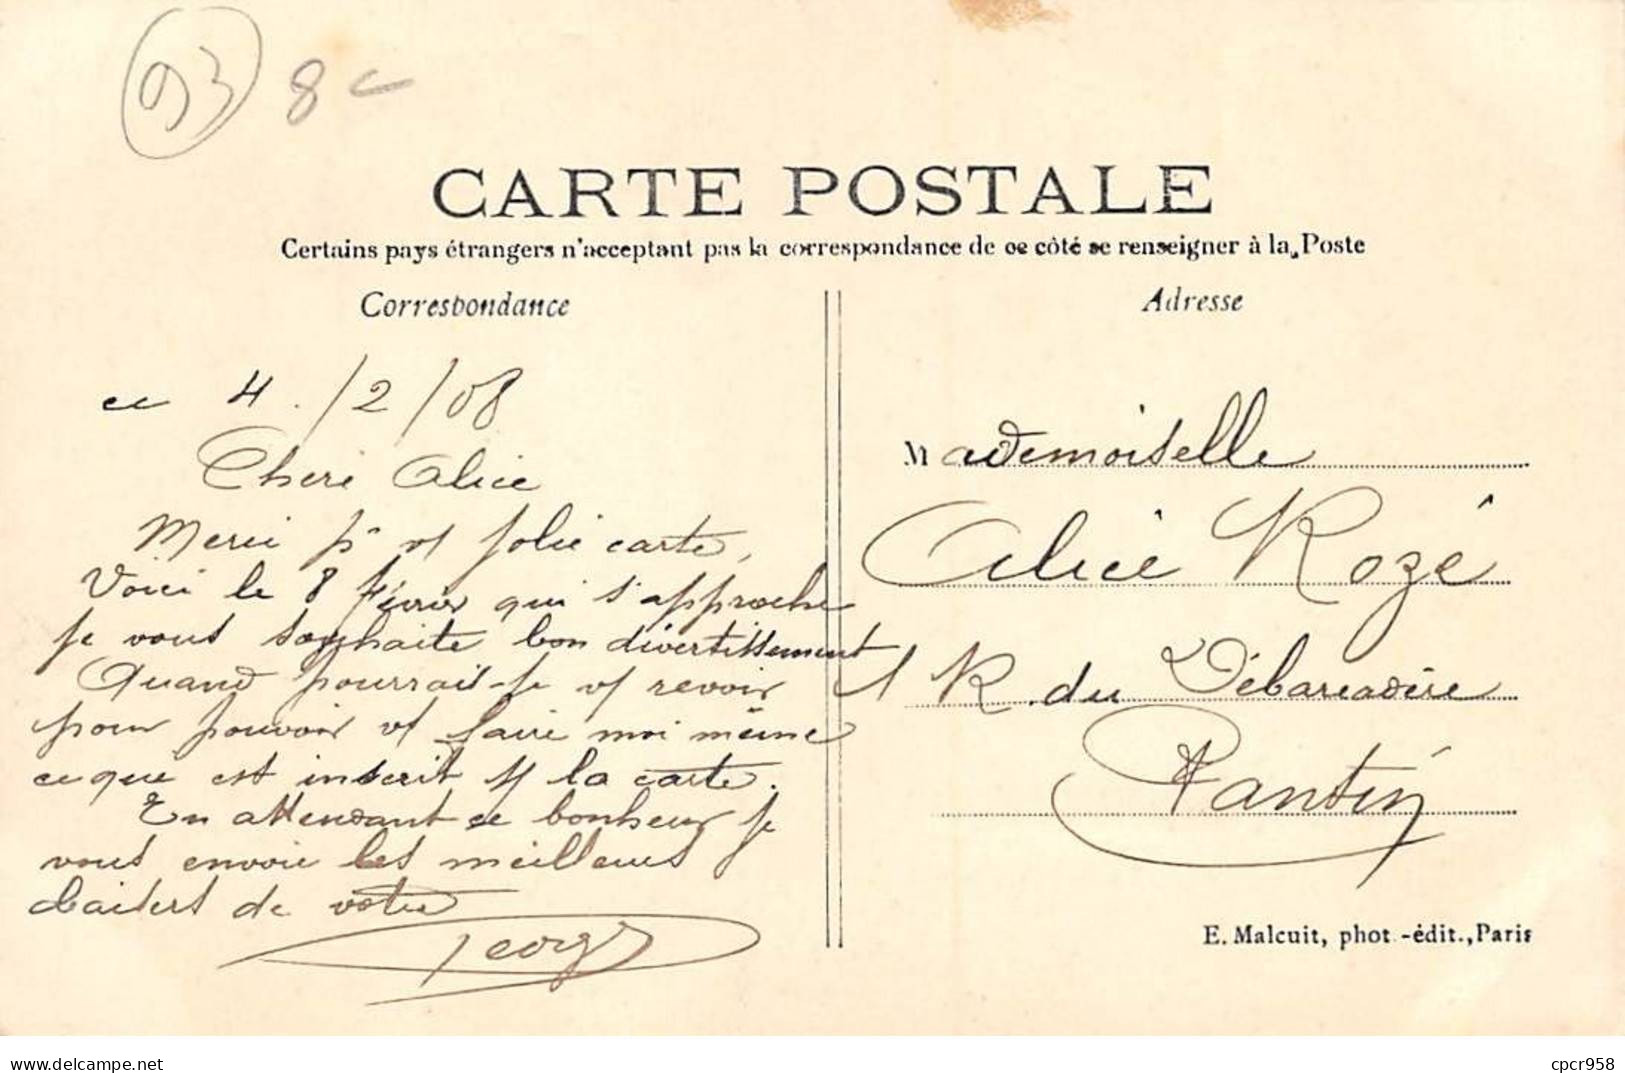 93 8
CARTE POSTALE
Certains pays étrangers n'acceptant pas la correspondance de ce côté se renseigner à la Poste
Correspondance
ce 4./2/08
Cheri Alice
Merci pr vs jolie carte,
Voici le 8 février qui s'approche
je vous souhaite bon divertissement
Quand pourrais-je vs revoir
pour pouvoir vs faire moi même
ce que est inscrit sr la carte.
En attendant ce bonheur je
vous envoie les meilleurs
baisers de votre
Georges
Adresse
Mademoiselle
Alice Rozé
1 R. du Débarcadère
Pantin
E. Malcuit, phot.-édit., Paris
delcampe.net
cpcr958